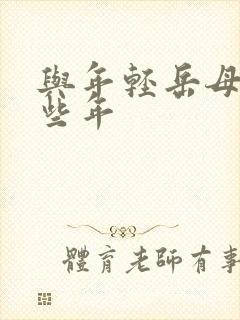 與年輕岳母
些年
體育老師有事